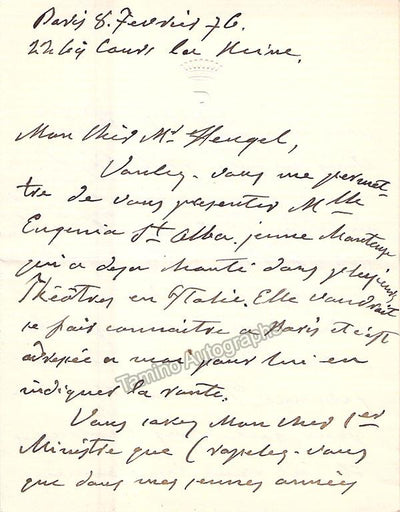 Paris 8. Fevrier 76.
22 bis Cours la Reine.
Mon cher Mr Heugel,
Voulez-vous me permet-
tre de vous presenter Mlle
Eugenia St Alba. jeune chanteuse
qui a deja chanté dans plusieurs
Théâtres en Italie. Elle voudrait
se faire connaitre a Paris et s'est
adressée a moi pour lui en
indiquer la route.
Vous savez Mon cher 1er
Ministre que (rapelez-vous
que dans mes jeunes années
Tamino Autographs